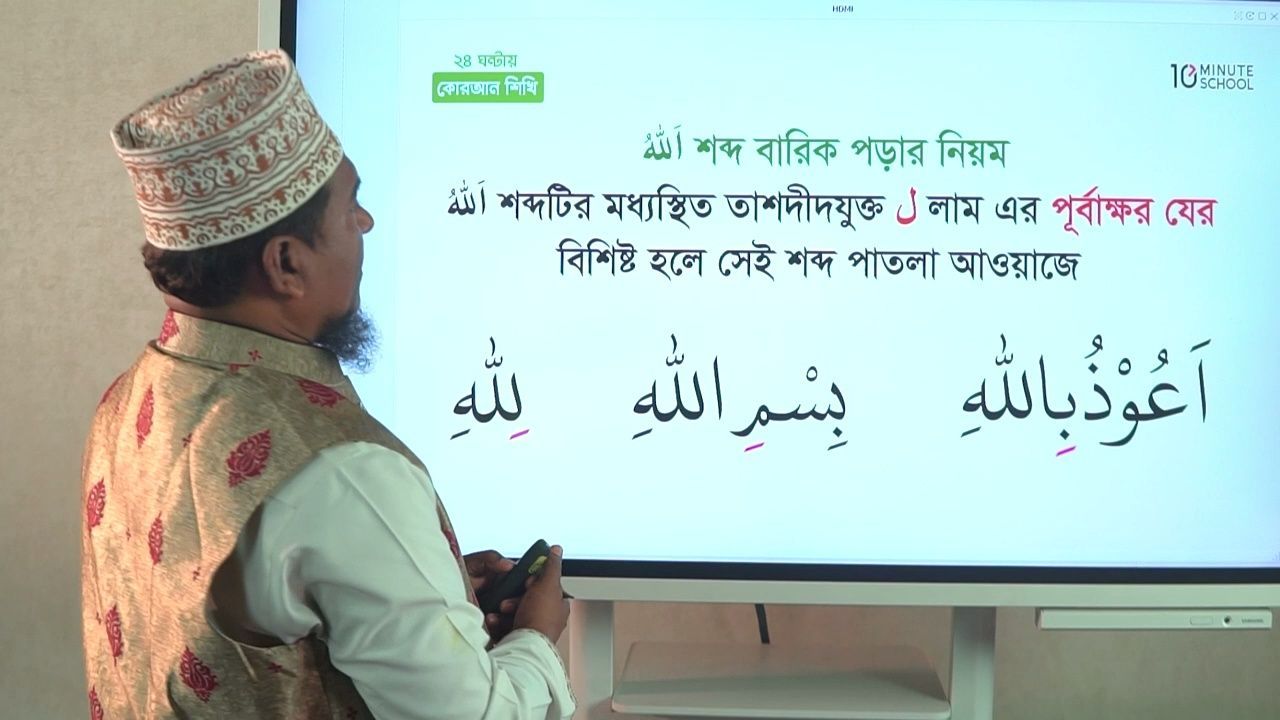 HDMI
২৪ ঘন্টায়
কোরআন শিখি
10 MINUTE
SCHOOL
اَللّٰهُ শব্দ বারিক পড়ার নিয়ম
اَللّٰهُ শব্দটির মধ্যস্থিত তাশদীদযুক্ত ل লাম এর পূর্বাক্ষর যের
বিশিষ্ট হলে সেই শব্দ পাতলা আওয়াজে
اَعُوْذُبِاللّٰهِ بِسْمِ اللّٰهِ لِلّٰهِ
SAMSUNG